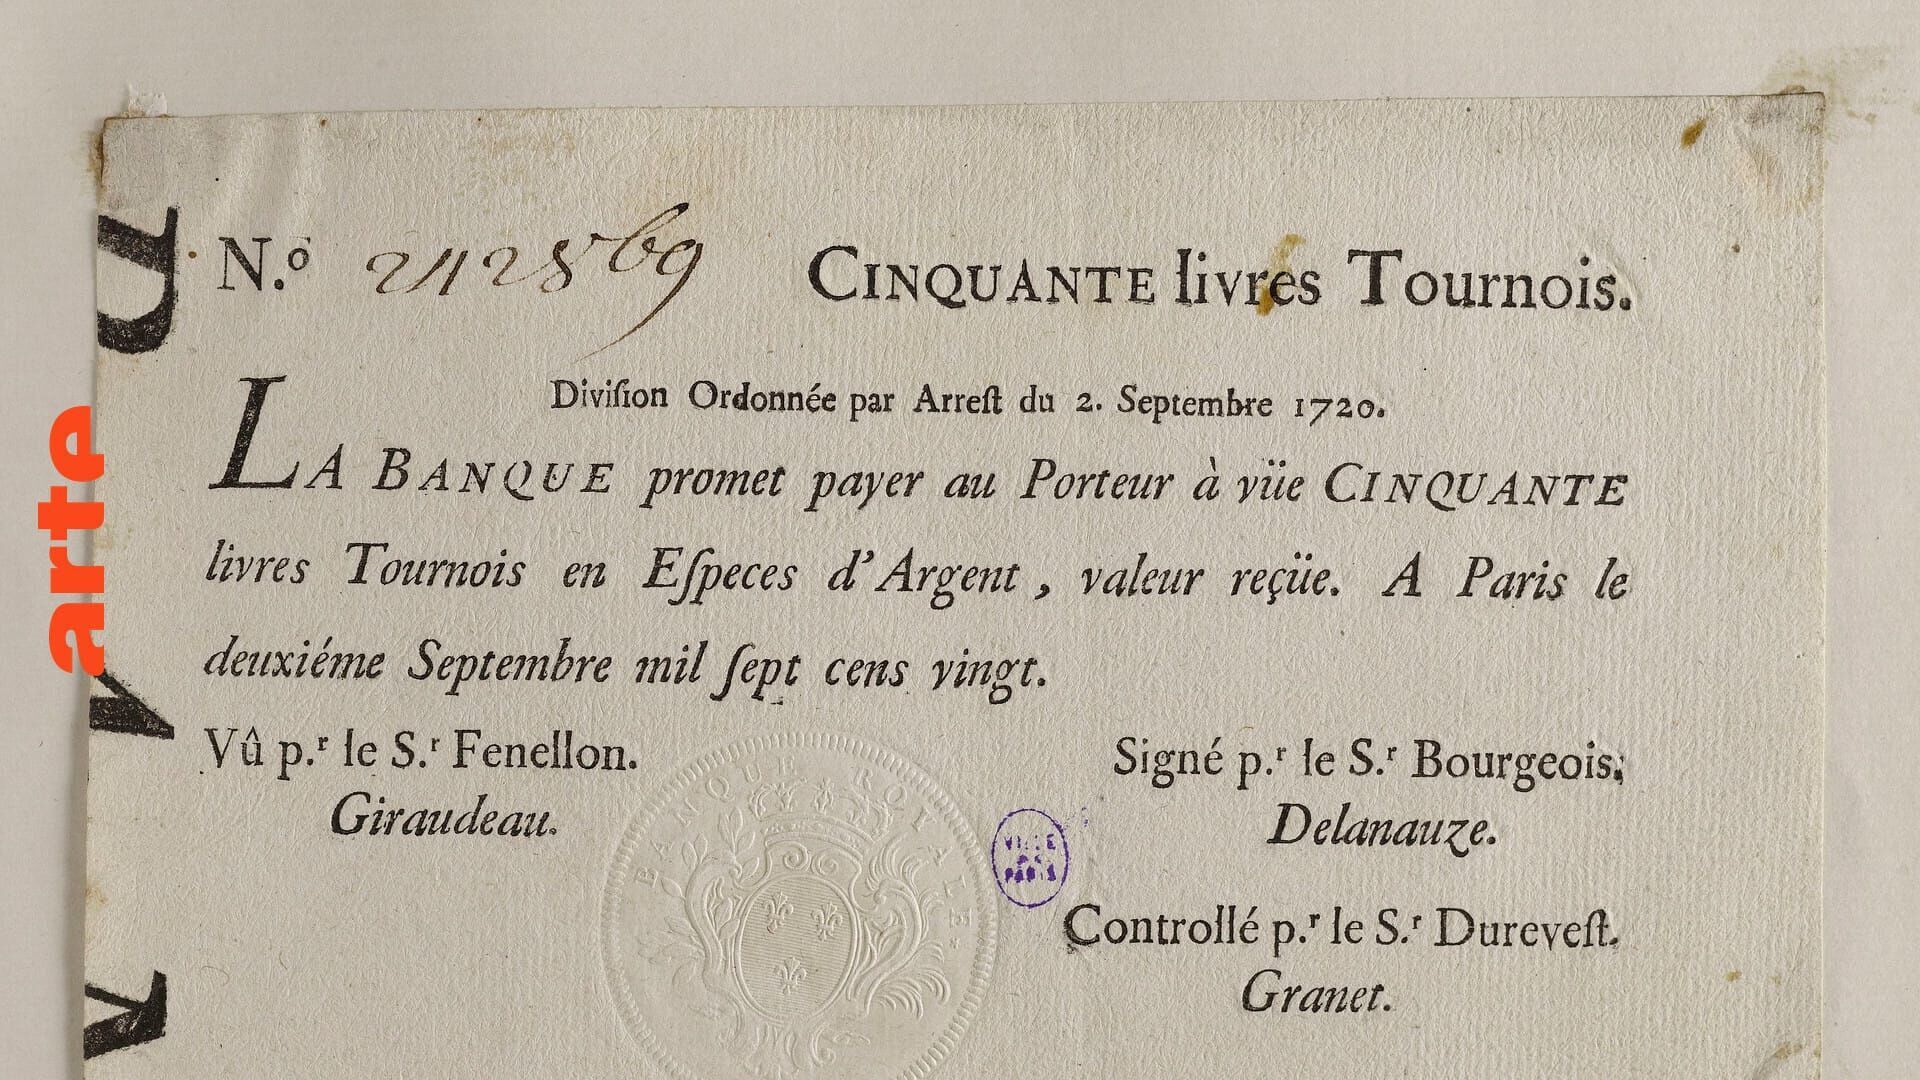 arte
N.º 2428569
CINQUANTE livres Tournois.
Diviſion Ordonnée par Arreſt du 2. Septembre 1720.
LA BANQUE promet payer au Porteur à vüe CINQUANTE
livres Tournois en Eſpeces d'Argent, valeur reçüe. A Paris le
deuxiéme Septembre mil ſept cens vingt.
Vû p.r le S.r Fenellon.
Giraudeau.
Signé p.r le S.r Bourgeois.
Delanauze.
Controllé p.r le S.r Dureveſt.
Granet.
BANQUE ROYALE
VILLE
DE
PARIS